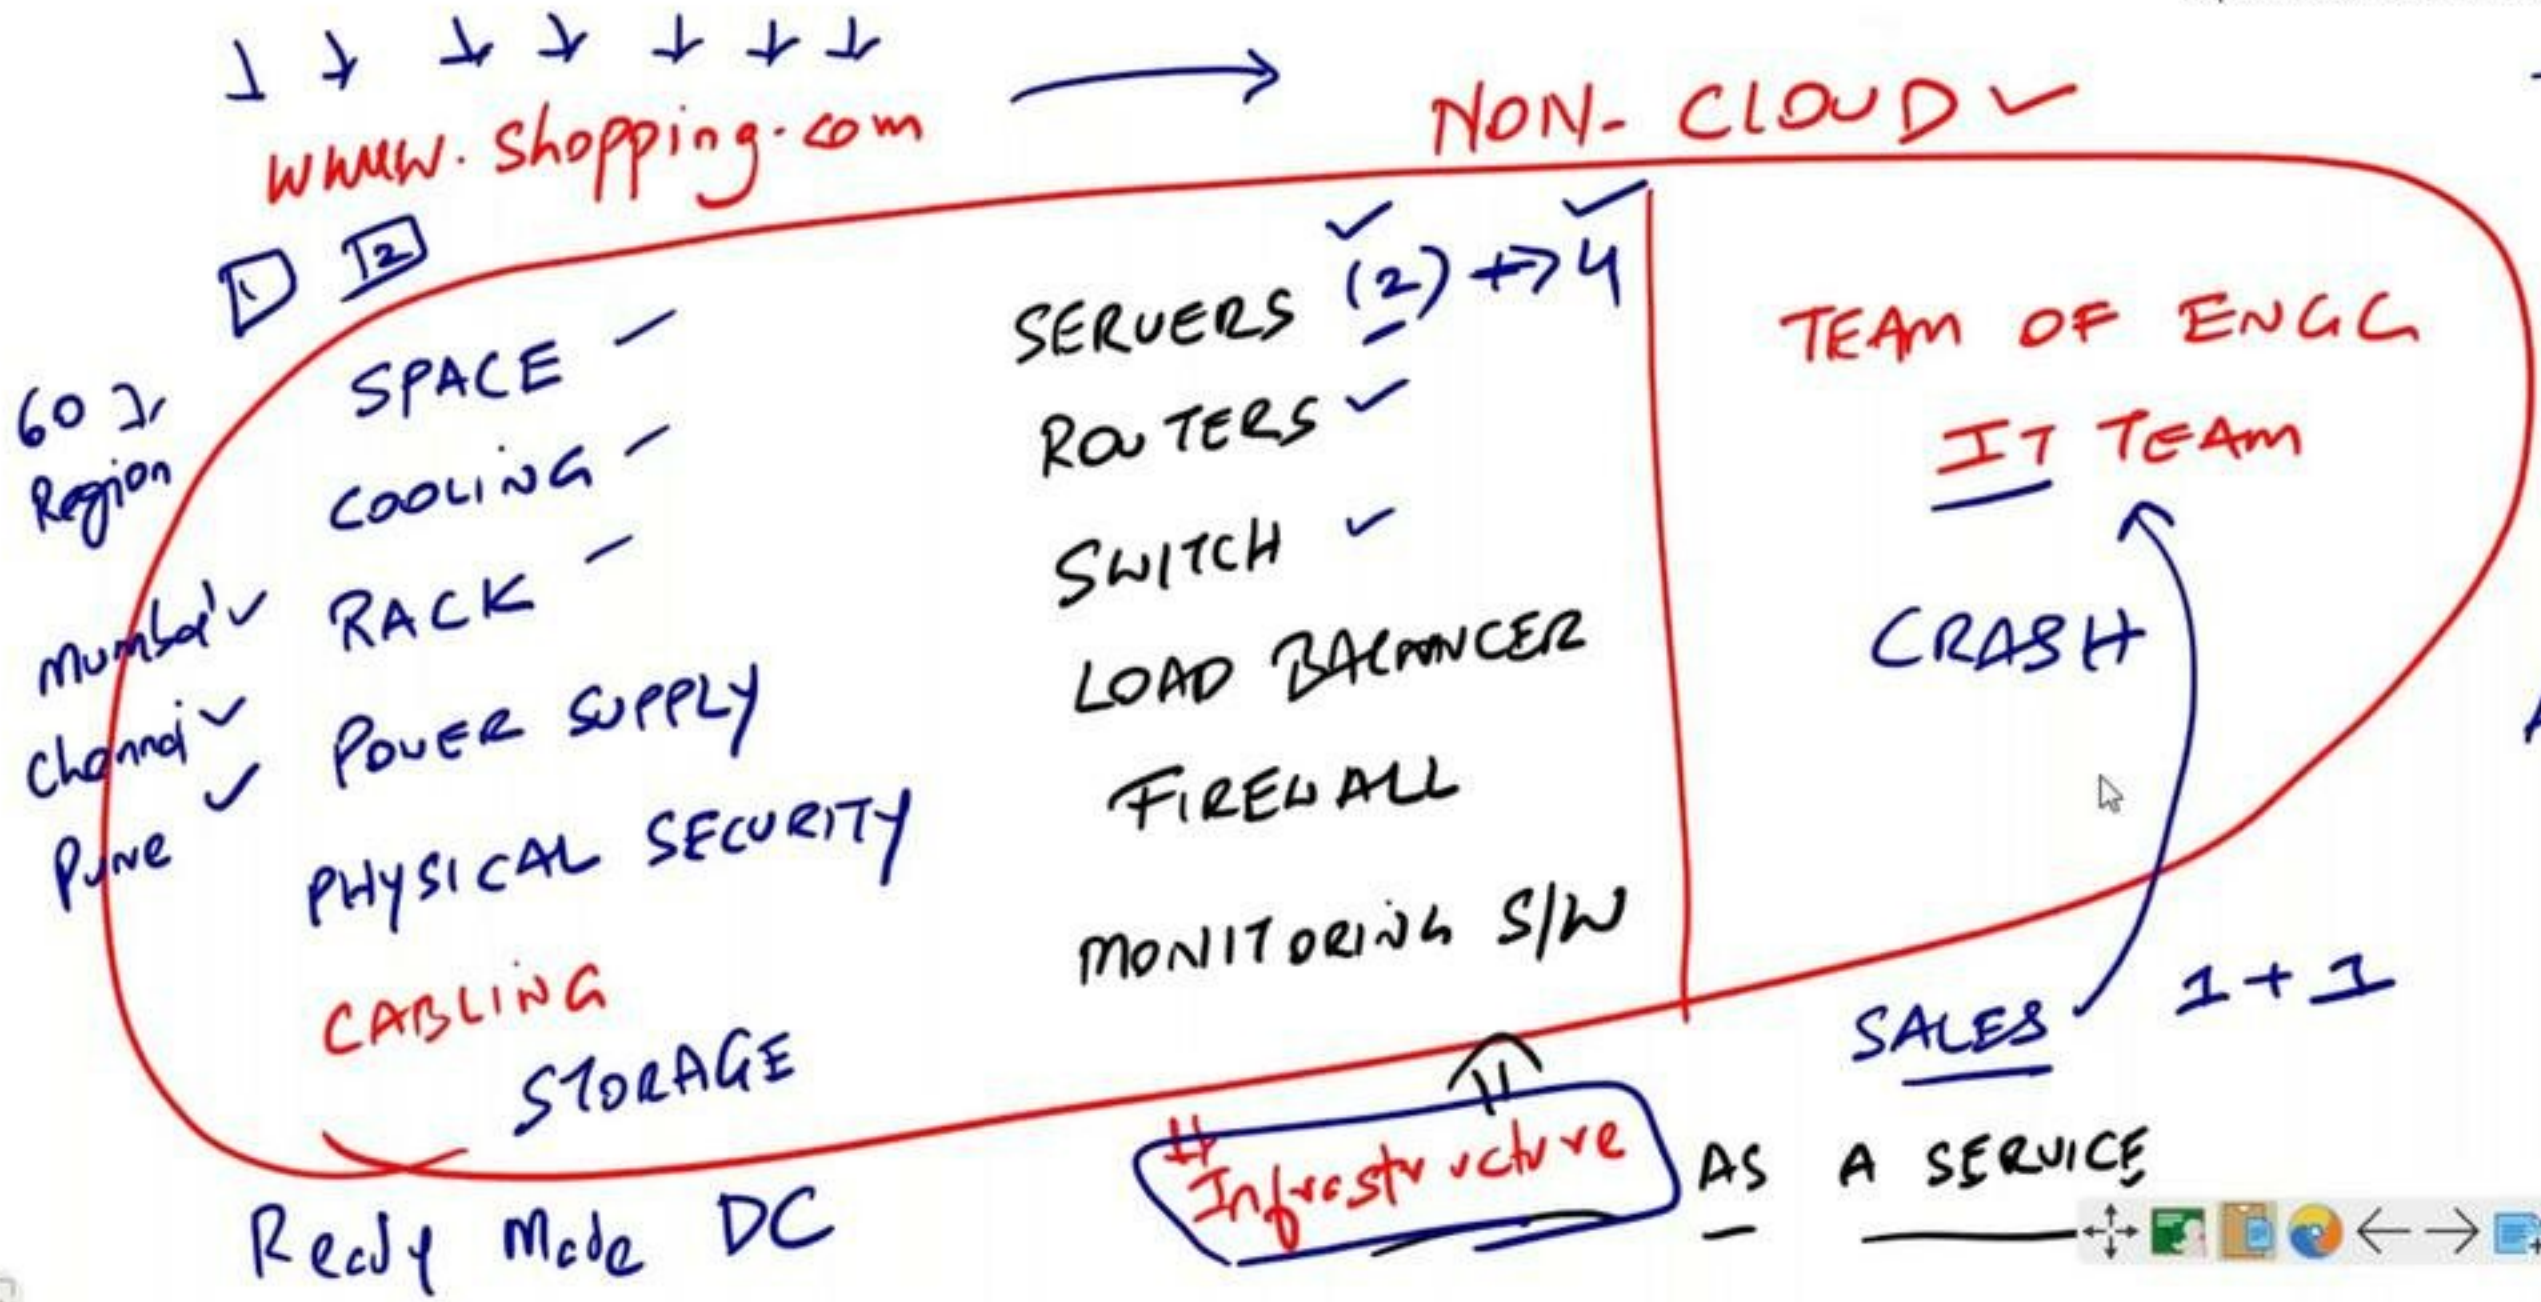 www.shopping.com
NON-CLOUD
1 T2
60
Region
Mumbai
Chennai
Pune
SPACE
COOLING
RACK
POWER SUPPLY
PHYSICAL SECURITY
CABLING
STORAGE
SERVERS (2) → 4
ROUTERS
SWITCH
LOAD BALANCER
FIREWALL
MONITORING S/W
TEAM OF ENGG
IT TEAM
CRASH
SALES 1+1
Ready Made DC
Infrastructure AS A SERVICE